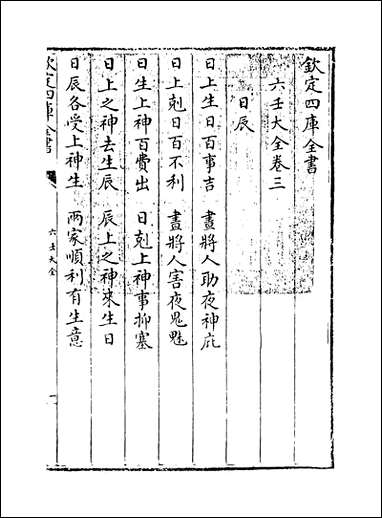 欽定四庫全書
六壬大全卷三
日辰
日上生日百事吉　晝將人助夜神庇
日上剋日百不利　晝將人害夜鬼魅
日生上神百費出　日剋上神事抑塞
日上之神去生辰　辰上之神來生日
日辰各受上神生　兩家順利有生意
欽定四庫全書
六壬大全
一